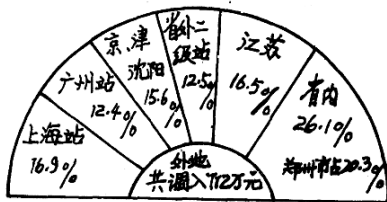 上海站
16.9%
广州站
12.4%
京、津
沈阳
15.6%
省外二
级站
12.5%
江苏
16.5%
省内
26.1%
郑州市占20.3%
外地
共调入7727万元